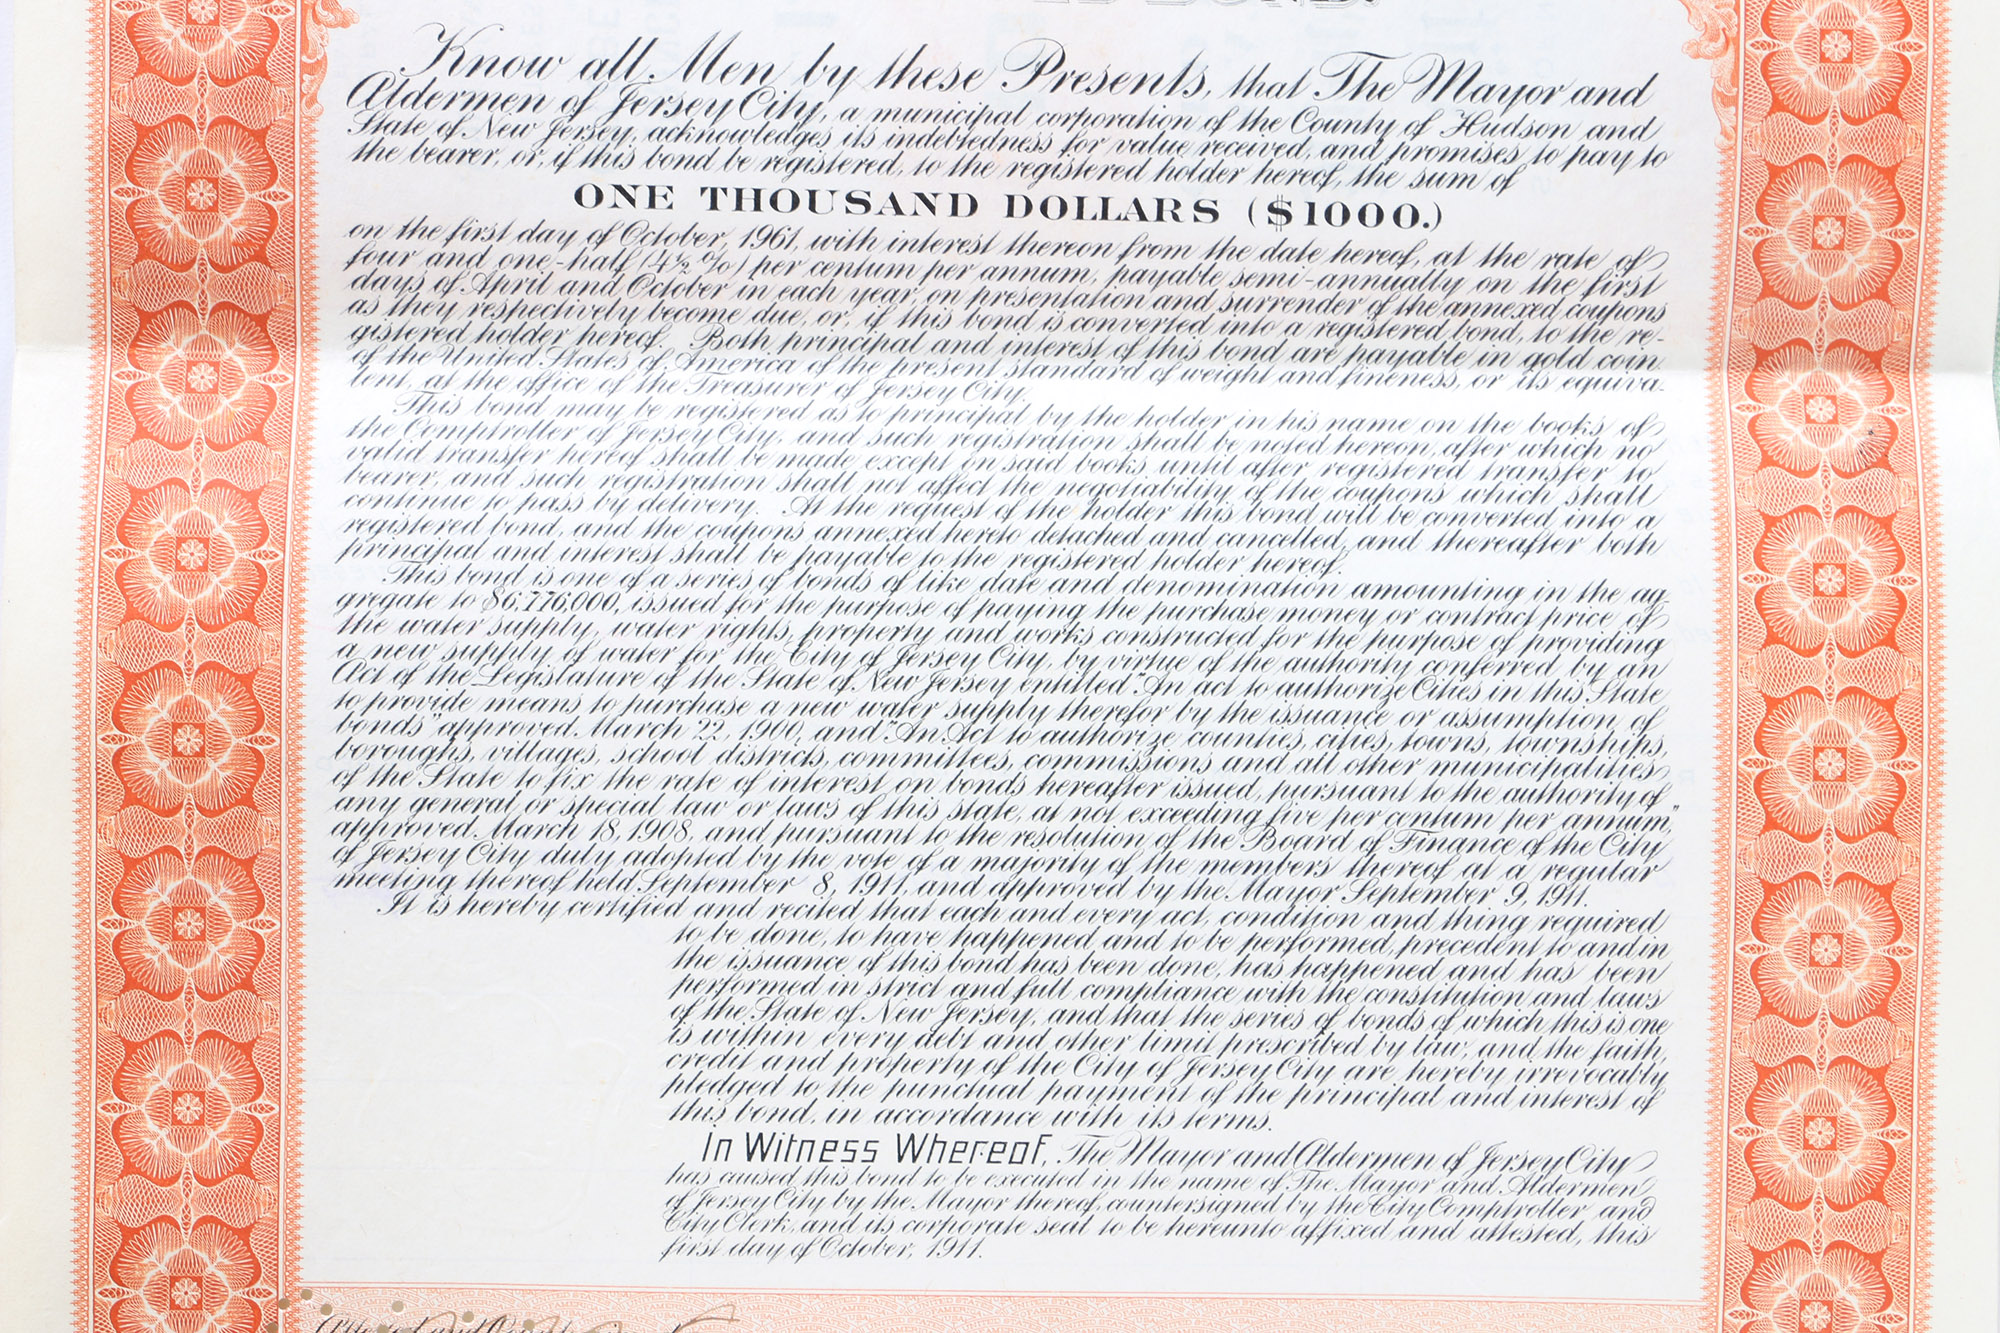 Know all Men by these Presents, that The Mayor and
Aldermen of Jersey City, a municipal corporation of the County of Hudson and
State of New Jersey, acknowledges its indebtedness for value received, and promises to pay to
the bearer, or, if this bond be registered, to the registered holder hereof, the sum of
ONE THOUSAND DOLLARS ($1000.)
on the first day of October, 1961, with interest thereon from the date hereof, at the rate of
four and one-half (4½%) per centum per annum, payable semi-annually on the first
days of April and October in each year, on presentation and surrender of the annexed coupons
as they respectively become due, or, if this bond is converted into a registered bond, to the re-
gistered holder hereof. Both principal and interest of this bond are payable in gold coin
of the United States of America of the present standard of weight and fineness, or its equiva-
lent, at the office of the Treasurer of Jersey City.
This bond may be registered as to principal by the holder in his name on the books of
the Comptroller of Jersey City, and such registration shall be noted hereon, after which no
valid transfer hereof shall be made except on said books until after registered transfer to
bearer, and such registration shall not affect the negotiability of the coupons which shall
continue to pass by delivery. At the request of the holder this bond will be converted into a
registered bond, and the coupons annexed hereto detached and cancelled, and thereafter both
principal and interest shall be payable to the registered holder hereof.
This bond is one of a series of bonds of like date and denomination amounting in the ag-
gregate to $6,776,000, issued for the purpose of paying the purchase money or contract price of
the water supply, water rights, property and works constructed for the purpose of providing
a new supply of water for the City of Jersey City, by virtue of the authority conferred by an
Act of the Legislature of the State of New Jersey entitled "An act to authorize Cities in this State
to provide means to purchase a new water supply therefor by the issuance or assumption of
bonds" approved March 22, 1900, and "An Act to authorize counties, cities, towns, townships,
boroughs, villages, school districts, committees, commissions and all other municipalities
of the State to fix the rate of interest on bonds hereafter issued, pursuant to the authority of
any general or special law or laws of this state, at not exceeding five per centum per annum,"
approved March 18, 1908, and pursuant to the resolution of the Board of Finance of the City
of Jersey City duly adopted by the vote of a majority of the members thereof at a regular
meeting thereof held September 8, 1911, and approved by the Mayor September 9, 1911.
It is hereby certified and recited that each and every act, condition and thing required
to be done, to have happened and to be performed, precedent to and in
the issuance of this bond has been done, has happened and has been
performed in strict and full compliance with the constitution and laws
of the State of New Jersey, and that the series of bonds of which this is one
is within every debt and other limit prescribed by law, and the faith,
credit and property of the City of Jersey City are hereby irrevocably
pledged to the punctual payment of the principal and interest of
this bond, in accordance with its terms.
In Witness Whereof, The Mayor and Aldermen of Jersey City
has caused this bond to be executed in the name of The Mayor and Aldermen
of Jersey City by the Mayor thereof, countersigned by the City Comptroller and
City Clerk, and its corporate seal to be hereunto affixed and attested, this
first day of October, 1911.